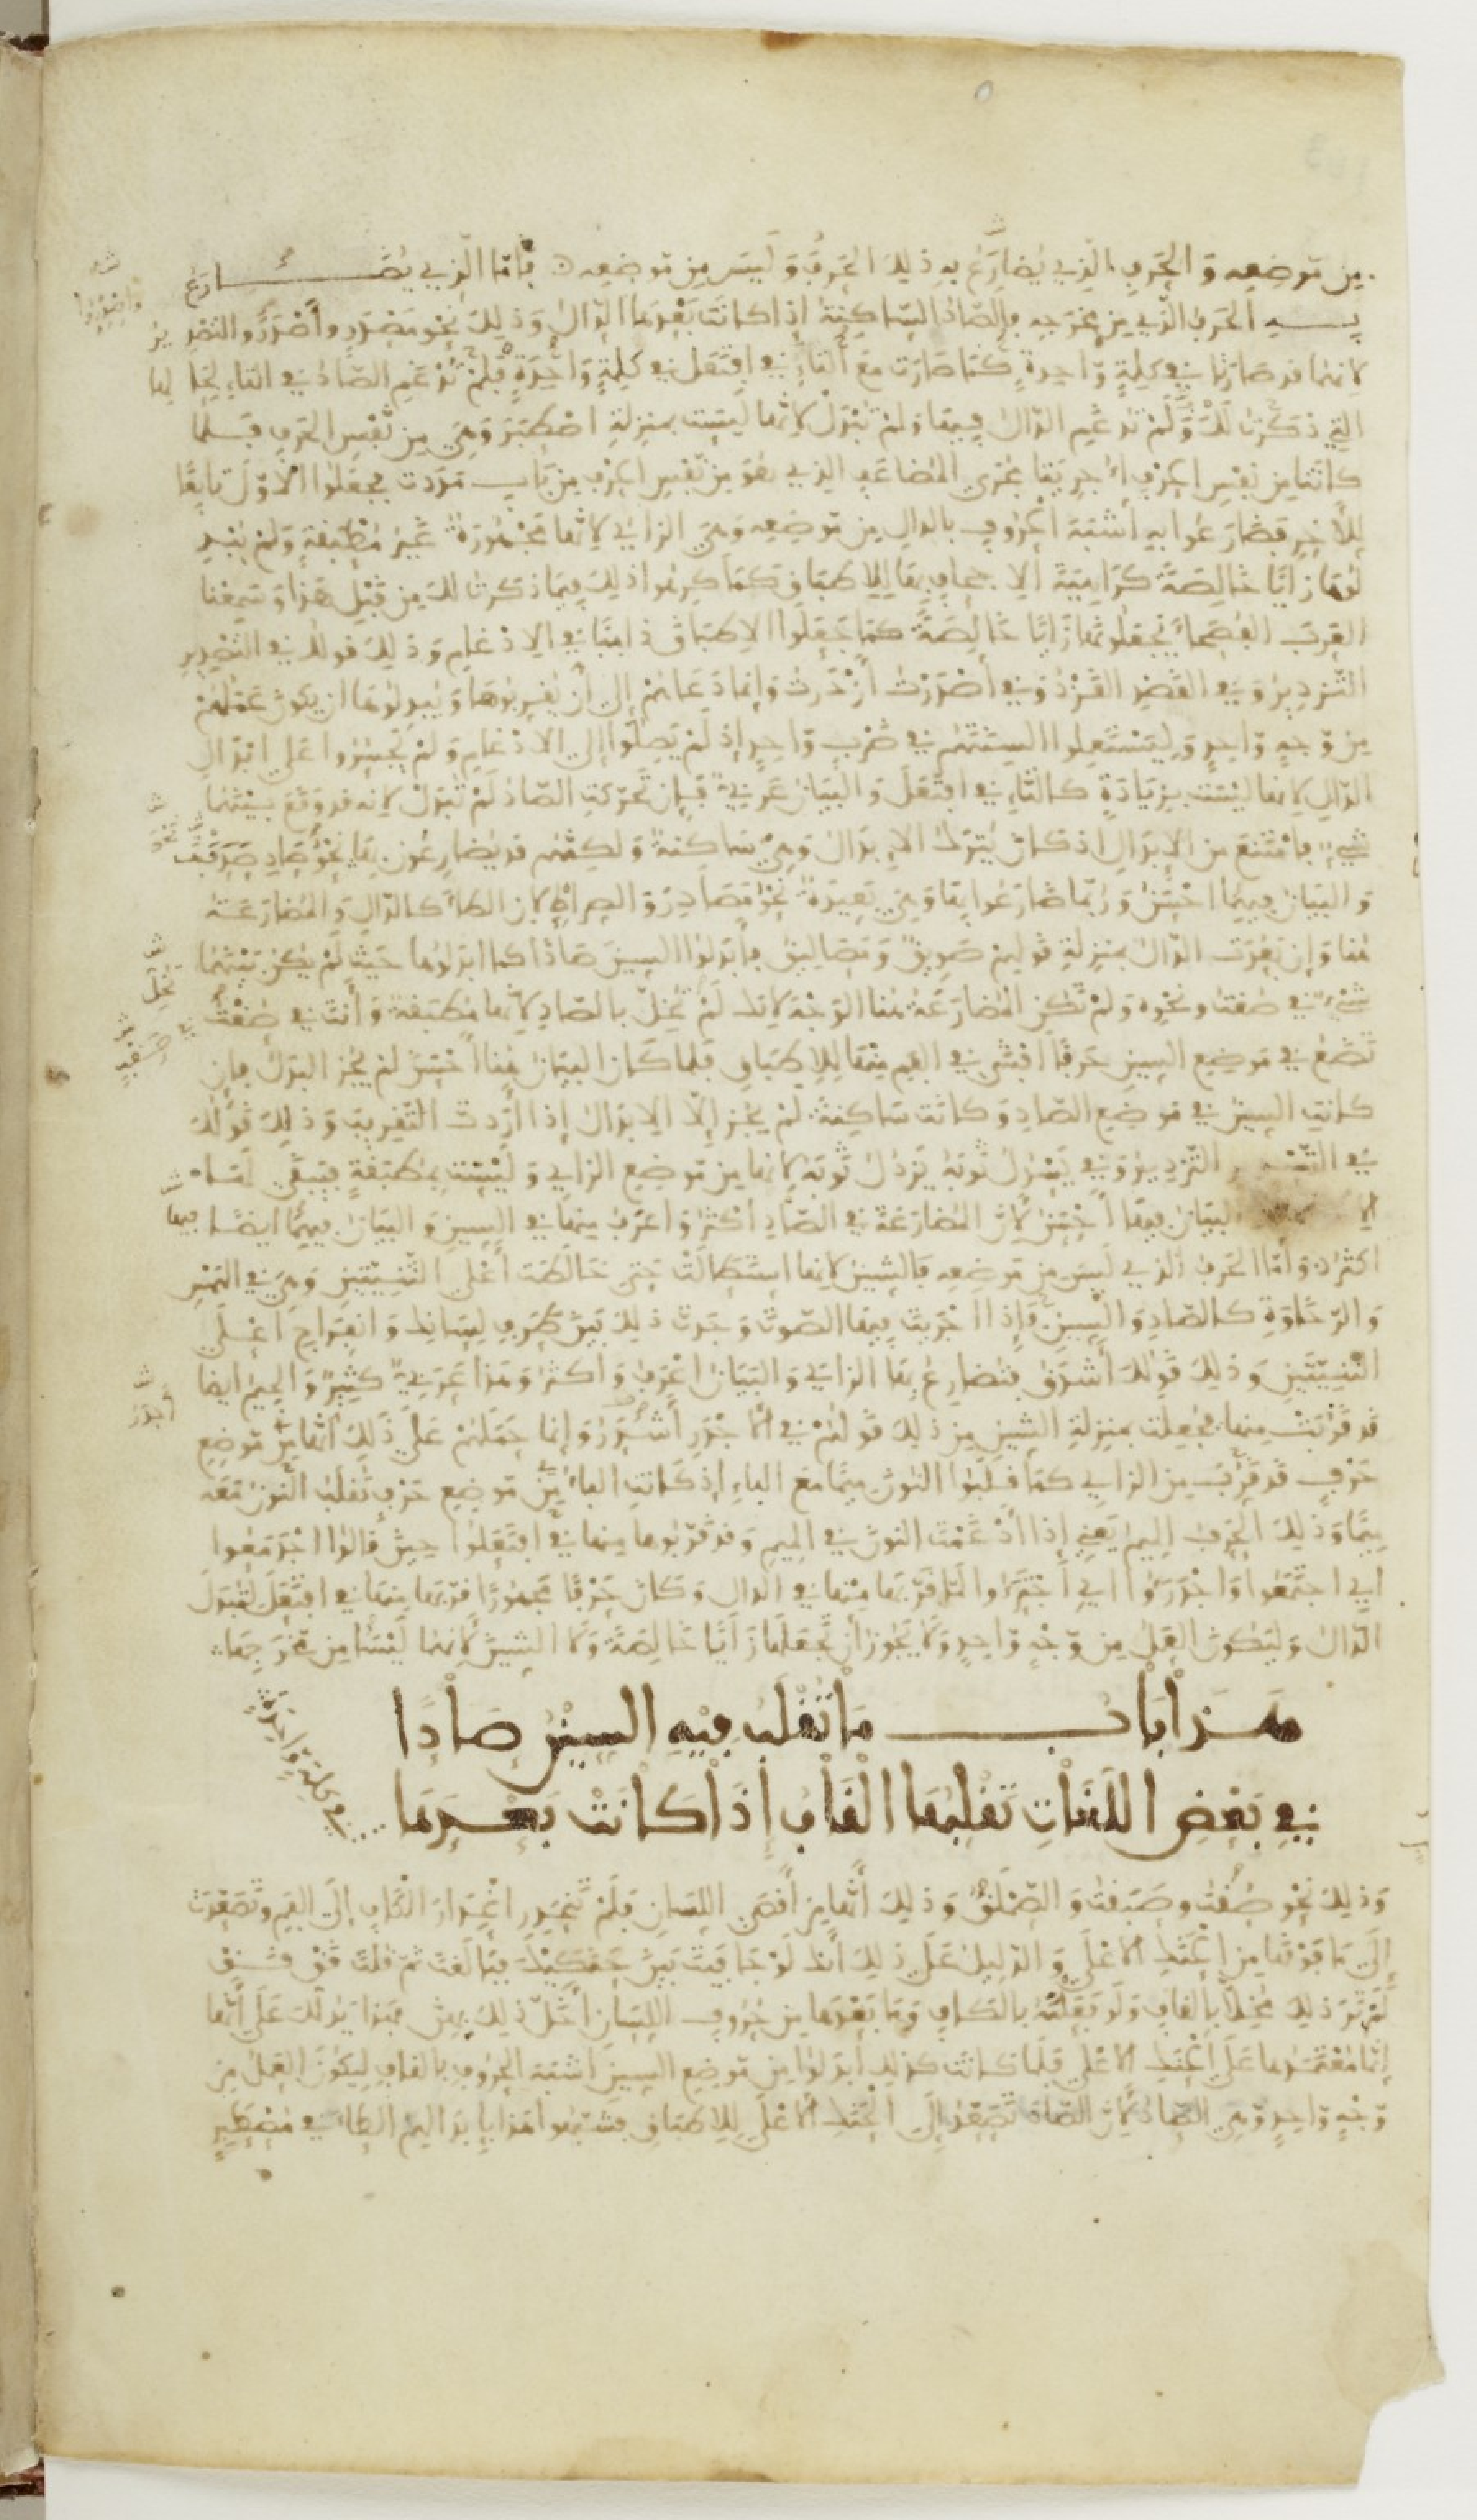 من موضعه والحرف الذي يضارع به ذلك الحرف وليس من موضعه فأما الذي يضارع
به الحرف الذي من مخرجه فالصاد الساكنة إذا كانت بعدها الدال وذلك نحو مصدر وأصدر والتصدير
لأنهما قد صارتا في كلمة واحدة كما صارت مع التاء في افتعل في كلمة واحدة فلم تدغم الصاد في التاء لحالها
التي ذكرت لك ولم تدغم الدال فيها ولم تبدل لأنها ليست بمنزلة اصطبر وهي من نفس الحرف فلما
كانتا من نفس الحرف أجريتا مجرى المضاعف الذي هو من نفس الحرف من باب مددت فجعلوا الأول تابعا
للآخر فضارعوا به أشبه الحروف بالدال من موضعه وهي الزاي لأنها مجهورة غير مطبقة ولم يبدلوها
زايا خالصة كراهية الإجحاف بها للإطباق كما كرهوا ذلك فيما ذكرت لك من قبل هذا وسمعنا
العرب الفصحاء يجعلونها زايا خالصة كما جعلوا الإطباق ذاهبا في الإدغام وذلك قولك في التصدير
التزدير وفي الفصد الفزد وفي أصدرت أزدرت وإنما دعاهم إلى أن يقربوها ويبدلوها أن يكون عملهم
من وجه واحد وليستعملوا ألسنتهم في ضرب واحد إذ لم يصلوا إلى الإدغام ولم يجسروا على إبدال
الدال لأنها ليست بزيادة كالتاء في افتعل والبيان عربي فإن تحركت الصاد لم تبدل لأنه قد وقع بينهما
شيء فامتنع من الإبدال إذ كان يترك الإبدال وهي ساكنة ولكنهم قد يضارعون بها نحو صاد صدقت
والبيان فيها أحسن وربما ضارعوا بها وهي بعيدة نحو مصادر والصراط لأن الطاء كالدال والمضارعة
هنا وإن بعدت الدال بمنزلة قولهم صويق ومصاليق فأبدلوا السين صادا كما أبدلوها حيث لم يكن بينهما
شيء في صقت ونحوه ولم تكن المضارعة هنا الوجه لأنك لم تخل بالصاد لأنها مطبقة وأنت في صقت
تضع في موضع السين حرفا أفشى في الفم منها للإطباق فلما كان البيان هنا أحسن لم يجز البدل فإن
كانت السين في موضع الصاد وكانت ساكنة لم يجز إلا الإبدال إذا أردت التقريب وذلك قولك
في التسدير التزدير وفي يسدل ثوبه يزدل ثوبه لأنها من موضع الزاي وليست بمطبقة فيبقى لها
البيان فيها أحسن لأن المضارعة في الصاد أكثر وأعرف منها في السين والبيان فيهما أيضا
أكثر وأما الحرف الذي ليس من موضعه فالشين لأنها استطالت حتى خالطت أعلى الثنيتين وهي في الهمس
والرخاوة كالصاد والسين فإذا أجريت فيها الصوت وجدت ذلك بين طرف لسانك وانفراج أعلى
الثنيتين وذلك قولك أشدق فتضارع بها الزاي والبيان أعرف وأكثر وهذا عربي كثير والجيم أيضا
قد قربت منها فجعلت بمنزلة الشين من ذلك قولهم في الأجدر أشدر وإنما حملهم على ذلك أنها من موضع
حرف قد قرب من الزاي كما قلبوا النون ميما مع الباء إذ كانت الباء من موضع حرف تقلب النون معه
ميما وذلك الحرف الميم يعني إذا أدغمت النون في الميم وقد قربوها منها في افتعلوا حين قالوا اجدمعوا
أي اجتمعوا واجدرءوا أي اجترءوا لما قربها منها في الدال وكان حرفا مجهورا قربها منها في افتعل لتبدل
الدال وليكون العمل من وجه واحد ولا يجوز أن تجعلها زايا خالصة ولا الشين لأنهما ليستا من مخرجها
هذا باب ما تقلب فيه السين صادا
في بعض اللغات تقلبها القاف إذا كانت بعدها
في كلمة واحدة
وذلك نحو صقت وصبقت والصملق وذلك أنها من أقصى اللسان فلم تنحدر انحدار الكاف إلى الفم وتصعدت
إلى ما فوقها من الحنك الأعلى والدليل على ذلك أنك لو جافيت بين حنكيك فبالغت ثم قلت قق قق
لم تر ذلك مخلا بالقاف ولو فعلته بالكاف وما بعدها من حروف اللسان أخل ذلك بهن فهذا يدلك على أنها
إنما معتمدها على الحنك الأعلى فلما كانت كذلك أبدلوا من موضع السين أشبه الحروف بالقاف ليكون العمل من
وجه واحد وهي الصاد لأن الصاد تصعد إلى الحنك الأعلى للإطباق فشبهوا هذا بإبدالهم الطاء في مصطبر